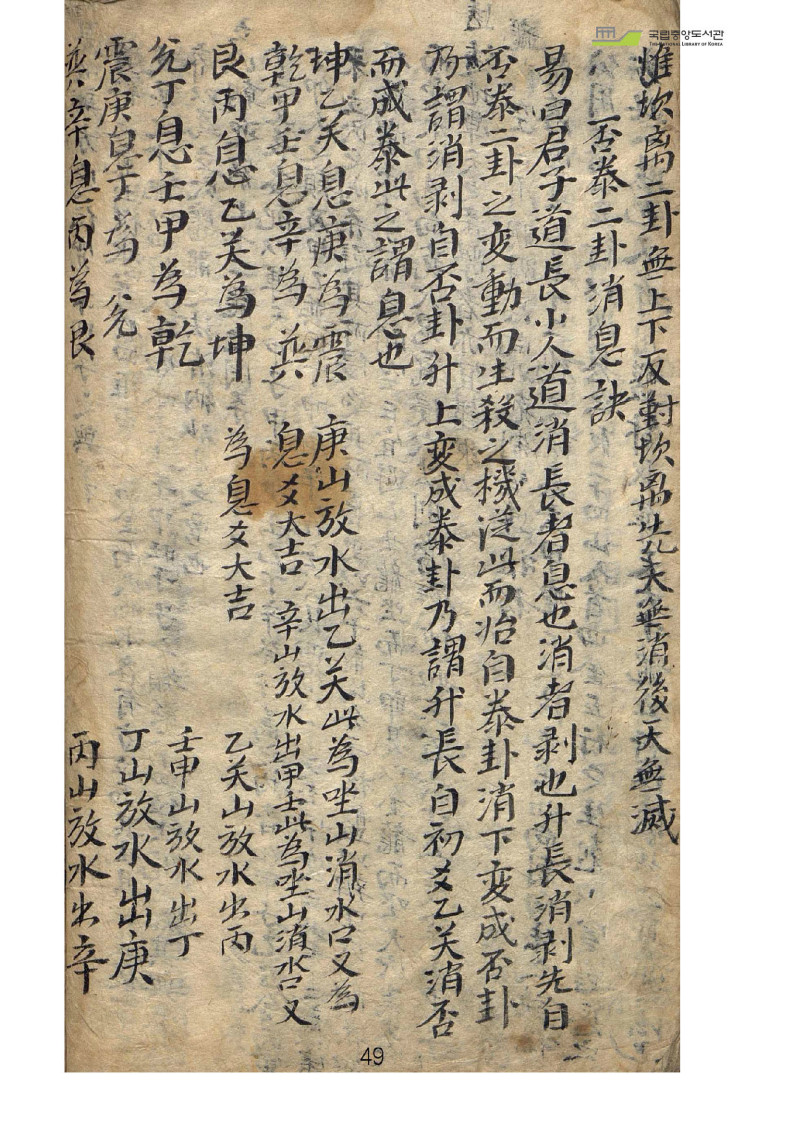 국립중앙도서관
THE NATIONAL LIBRARY OF KOREA
惟坎离二卦無上下反對坎离先天無消後天無滅
否泰二卦消息訣
易曰君子道長小人道消長者息也消者剥也升長消剥先自
否泰二卦之变動而生殺之機従此而始自泰卦消下变成否卦
乃謂消剥自否卦升上变成泰卦乃謂升長自初爻乙关消否
而成泰此之謂息也
坤乙关息庚為震 庚山放水出乙关此為坐山消水口又為
乾甲壬息辛為巽 息爻大吉 辛山放水出甲壬此為坐山消水口又
艮丙息乙关為坤 為息爻大吉 乙关山放水出丙
兊丁息壬甲為乾 壬甲山放水出丁
震庚息丁為兊 丁山放水出庚
巽辛息丙為艮 丙山放水出辛
49